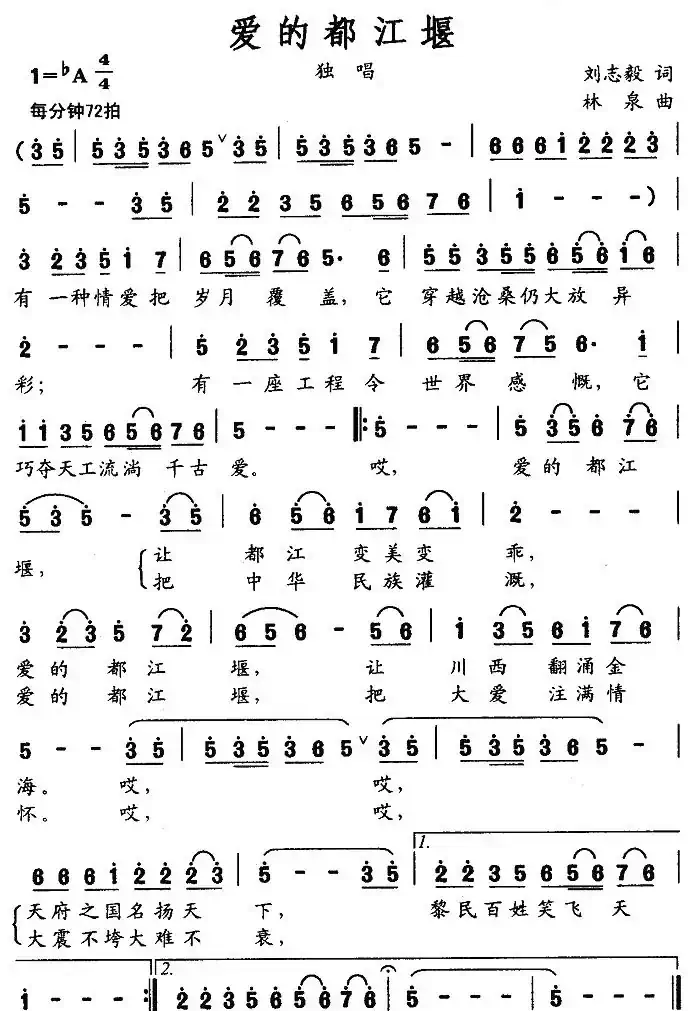 爱的都江堰
1=♭A 4/4
独 唱
刘志毅 词
每分钟72拍
林 泉 曲
(3 5 | 5 3 5 3 6 5 ∨ 3 5 | 5 3 5 3 6 5 - | 6 6 6 1 2 2 2 3 |
5 - - 3 5 | 2 2 3 5 6 5 6 7 6 | 1 - - - )
3 2 3 5 1 7 | 6 5 6 7 6 5· 6 | 5 5 3 5 5 6 5 6 1 6 |
有一种情爱把 岁月 覆 盖，它 穿越沧桑仍大放 异
2 - - - | 5 2 3 5 1 7 | 6 5 6 7 5 6· 1 |
彩； 有 一座工程令 世界 感 慨，它
1 1 3 5 6 5 6 7 6 | 5 - - - |: 5 - - - | 5 3 5 6 7 6 |
巧夺天工流淌 千古 爱。 哎， 爱的 都江
5 3 5 - 3 5 | 6 5 6 1 7 6 1 | 2 - - - |
堰， 让 都江 变美变 乖，
把 中华 民族灌 溉，
3 2 3 5 7 2 | 6 5 6 - 5 6 | 1 3 5 6 1 7 6 |
爱的 都江 堰， 让 川西 翻涌金
爱的 都江 堰， 把 大爱 注满情
5 - - 3 5 | 5 3 5 3 6 5 ∨ 3 5 | 5 3 5 3 6 5 - |
海。 哎， 哎，
怀。 哎， 哎，
1.
6 6 6 1 2 2 2 3 | 5 - - 3 5 | 2 2 3 5 6 5 6 7 6 |
天府之国名扬天 下， 黎民百姓笑飞 天
大震不垮大难不 衰，
2.
1 - - - :| 2 2 3 5 6 5 6 7 6 | 5 - - - | 5 - - - ‖